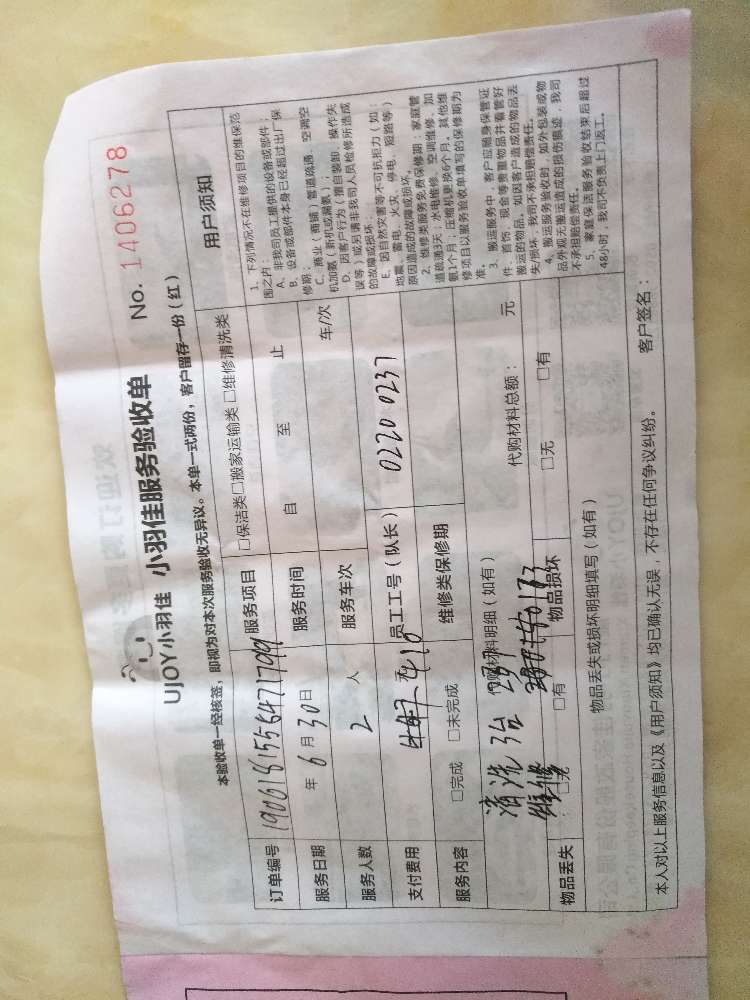 UJOY小羽佳 小羽佳服务验收单 No. 1406278
本验收单一经核签，即视为对本次服务验收无异议。本单一式两份，客户留存一份（红）
订单编号 1906181556471799 服务项目 □保洁类□搬家运输类 □维修清洗类
服务日期 年 6 月 30 日 服务时间 自 至 止
服务人数 2 人 服务车次 车/次
支付费用 410 员工工号（队长） 0220 0237
服务内容 □完成 □未完成 维修类保修期
清洗 3台 237 代购材料明细（如有） 代购材料总额： 元
维修
物品丢失 □无 □有 物品损坏 □无 □有
物品丢失或损坏明细填写（如有）
用户须知
1、下列情况不在维修项目的维保范
围之内：
A、非我司员工提供的设备或部件；
B、设备或部件本身已经超过出厂保
修期；
C、商业（商铺）管道疏通、空调空
机加氨（新机或漏氨）；
D、因客户行为（擅自装卸、操作失
误等）或另请非我司人员检修所造成
的故障或损坏；
E、因自然灾害等不可抗拒力（如：
地震、雷电、火灾、停电、短路等）
原因造成的故障或损坏。
2、维修类服务免费保修期：家庭管
道疏通3天；水电维修、空调维修、加
氨1个月；压缩机更换6个月，其他维
修项目以服务验收单填写的保修期为
准。
3、搬运服务中，客户应随身保管证
件、首饰、现金等贵重物品并看管好
搬运的物品。如因客户造成的物品丢
失/损坏，我司不承担赔偿责任。
4、搬运服务验收时，如外包装或物
品外观无搬运造成的损伤痕迹，我司
不承担赔偿责任。
5、家庭保洁服务验收结束后超过
48小时，我司不负责上门返工。
本人对以上服务信息以及《用户须知》均已确认无误，不存在任何争议纠纷。 客户签名：